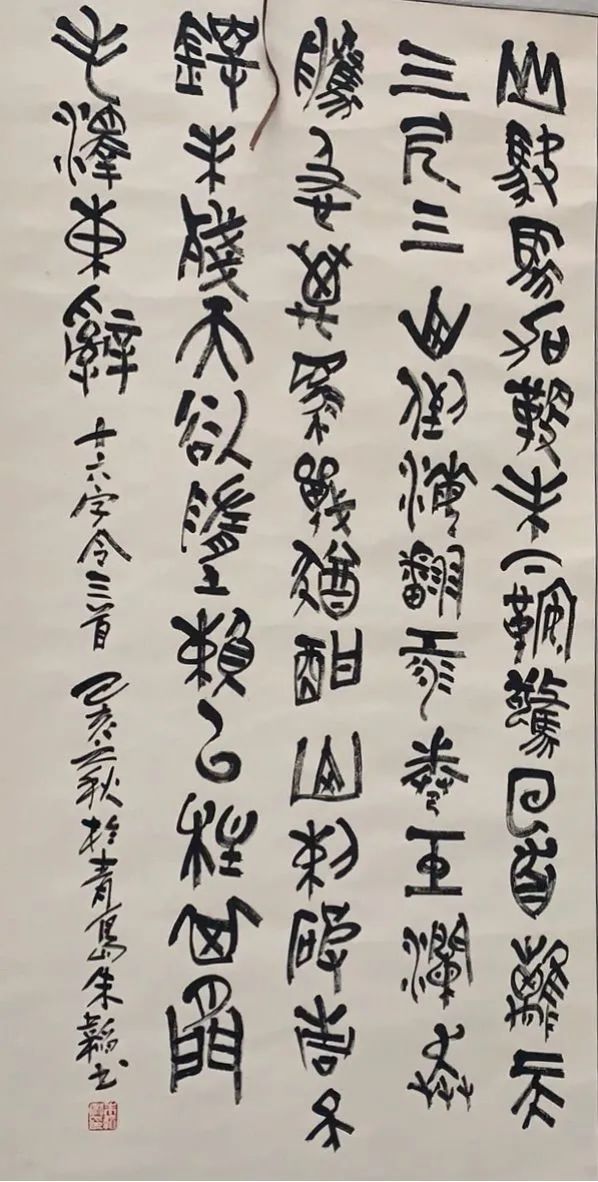 山駃馬加鞭未下鞍驚回首離天
三尺三山倒海翻江卷巨瀾奔
騰急萬馬戰猶酣山刺破青天
鍔未殘天欲墮賴以柱其間
毛澤東辭 十六字令三首 己亥之秋於青島朱韜书